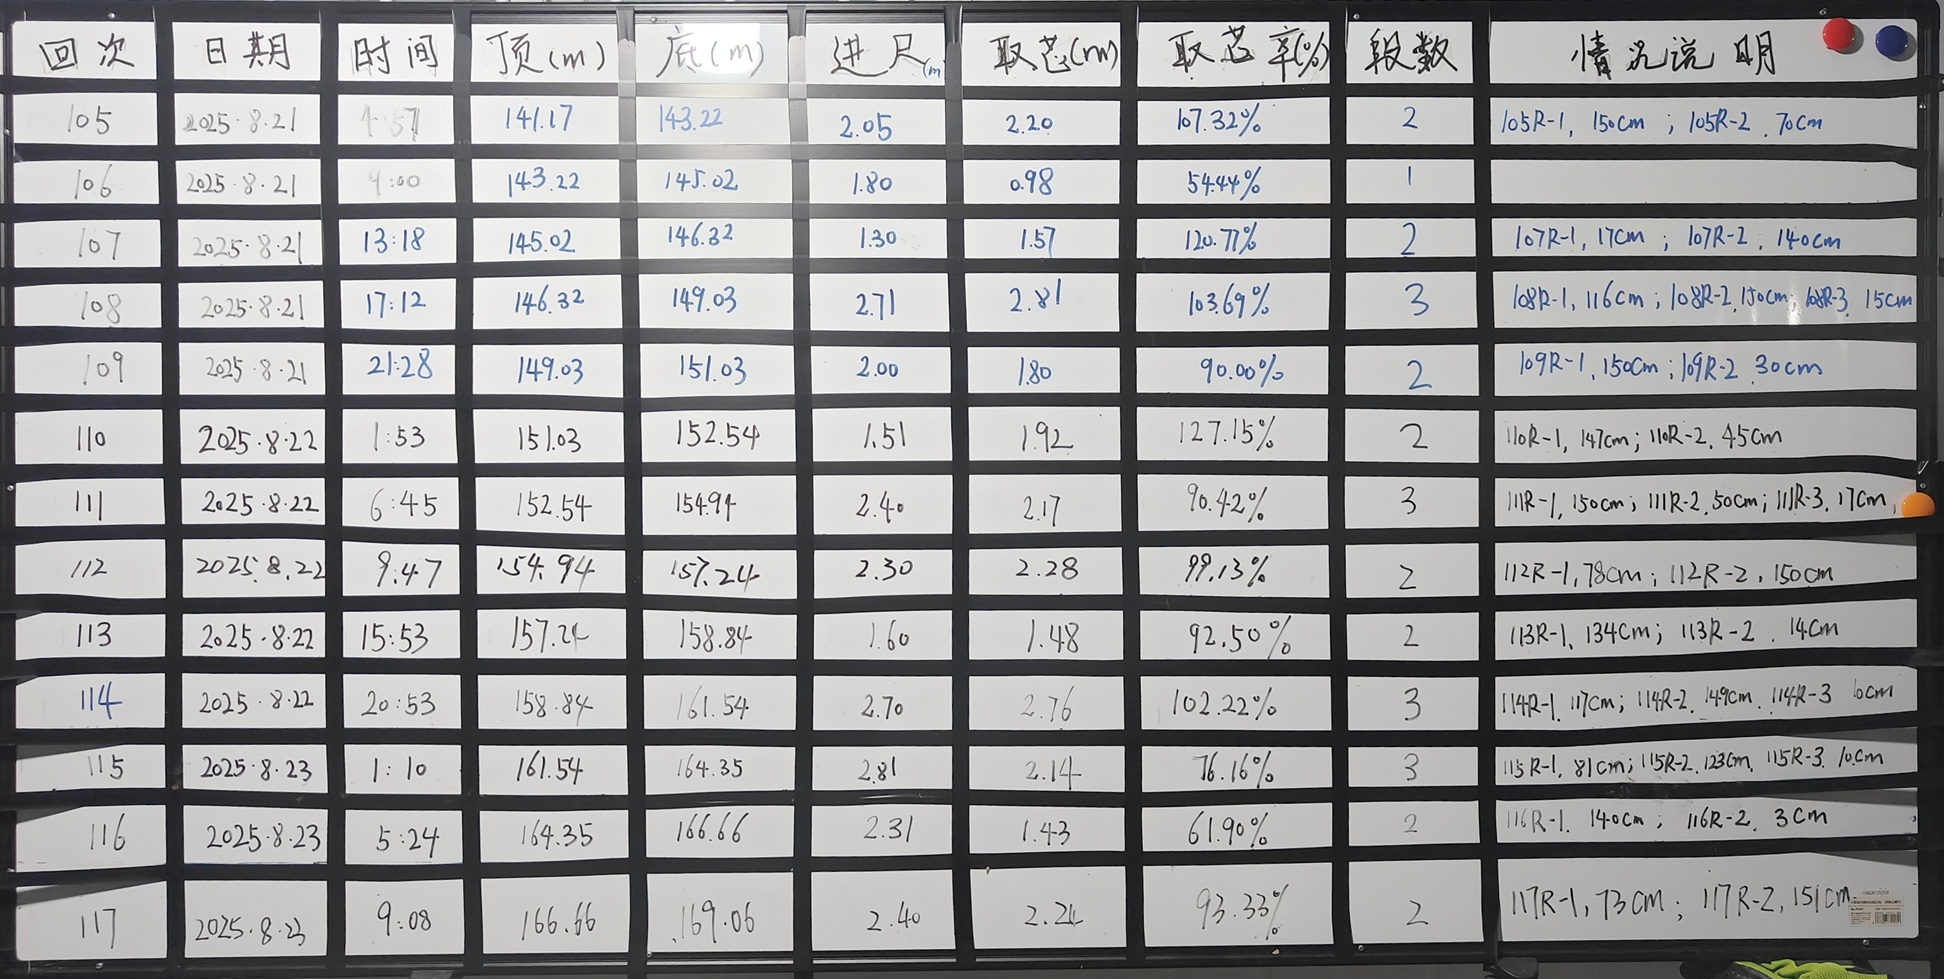 回次 日期 时间 顶(m) 底(m) 进尺(m) 取芯(m) 取芯率(%) 段数 情况说明
105 2025.8.21 4:57 141.17 143.22 2.05 2.20 107.32% 2 105R-1, 150cm ; 105R-2, 70cm
106 2025.8.21 9:00 143.22 145.02 1.80 0.98 54.44% 1
107 2025.8.21 13:18 145.02 146.32 1.30 1.57 120.77% 2 107R-1, 17cm ; 107R-2, 140cm
108 2025.8.21 17:12 146.32 149.03 2.71 2.81 103.69% 3 108R-1, 116cm ; 108R-2, 150cm; 108R-3, 15cm
109 2025.8.21 21:28 149.03 151.03 2.00 1.80 90.00% 2 109R-1, 150cm ; 109R-2, 30cm
110 2025.8.22 1:53 151.03 152.54 1.51 1.92 127.15% 2 110R-1, 147cm; 110R-2, 45cm
111 2025.8.22 6:45 152.54 154.94 2.40 2.17 90.42% 3 111R-1, 150cm; 111R-2, 50cm; 111R-3, 17cm
112 2025.8.22 9:47 154.94 157.24 2.30 2.28 99.13% 2 112R-1, 78cm; 112R-2, 150cm
113 2025.8.22 15:53 157.24 158.84 1.60 1.48 92.50% 2 113R-1, 134cm; 113R-2, 14cm
114 2025.8.22 20:53 158.84 161.54 2.70 2.76 102.22% 3 114R-1, 117cm; 114R-2, 149cm, 114R-3 10cm
115 2025.8.23 1:10 161.54 164.35 2.81 2.14 76.16% 3 115R-1, 81cm; 115R-2, 123cm, 115R-3, 10cm
116 2025.8.23 5:24 164.35 166.66 2.31 1.43 61.90% 2 116R-1, 140cm; 116R-2, 3cm
117 2025.8.23 9:08 166.66 169.06 2.40 2.24 93.33% 2 117R-1, 73cm; 117R-2, 151cm